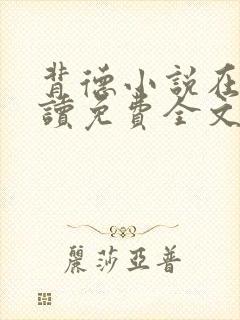 背德小說在
讀免費全文
麗莎亞普